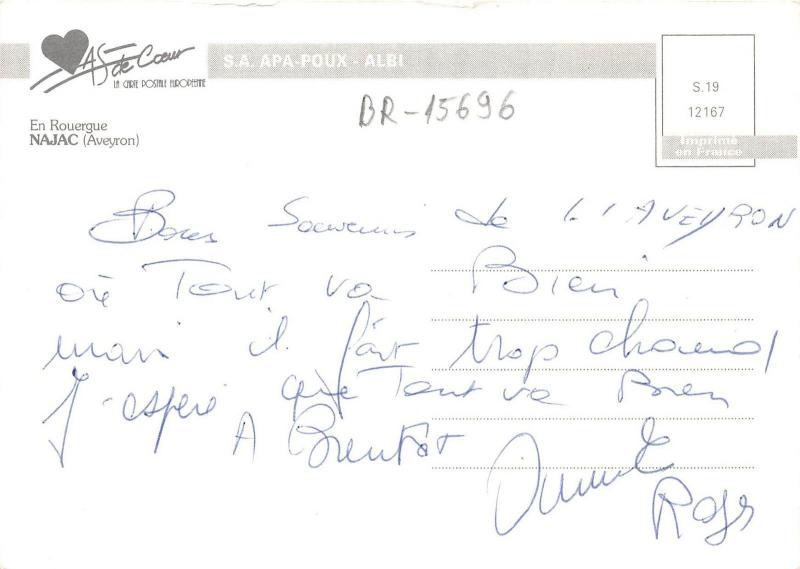 AS de Cœur
LA CARTE POSTALE EUROPEENNE
S.A. APA-POUX - ALBI
S.19
12167
Imprimé
en France
BR-15696
En Rouergue
NAJAC (Aveyron)
Bons Souvenirs de L'AVEYRON
où Tout va Bien
mais il fait trop chaud
J'espère que Tout va Bien
A Bientôt